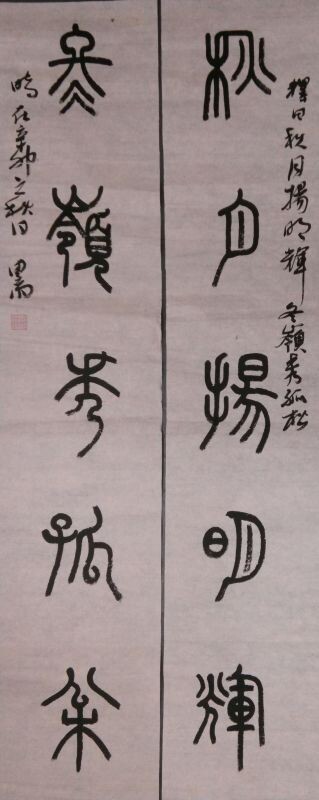 釋曰秋月揚明輝冬嶺秀孤松
秋月揚明輝
冬嶺秀孤松
時在辛卯之秋日